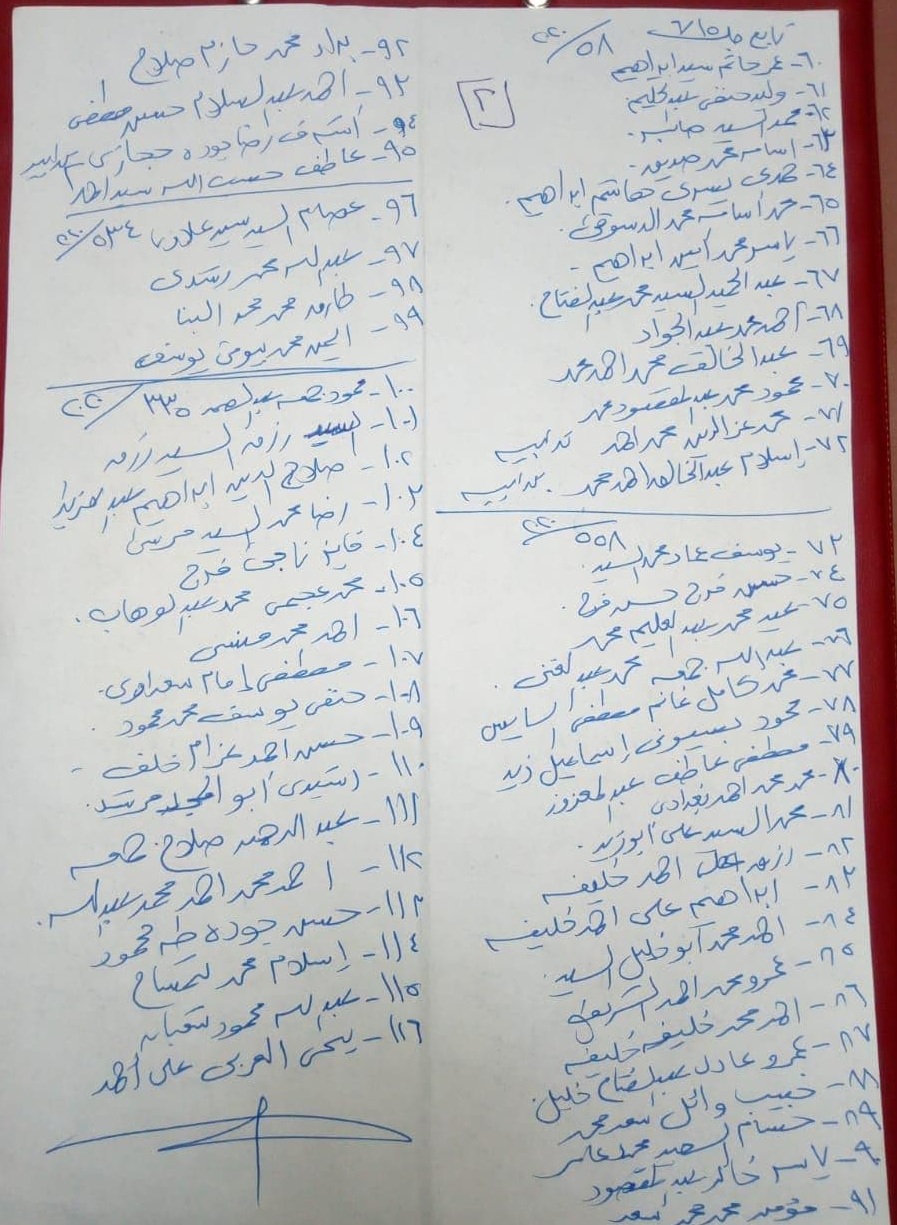 تابع جلسة ٧/٥
٢٠٢٠/٥٨
[٢]
٦٠- عمر حاتم سيد ابراهيم
٦١- وليد حنفى عبدالحليم
٦٢- محمد السيد صابر
٦٣- اسامه محمد صديق
٦٤- حمدى يسرى هاشم ابراهيم
٦٥- محمد اسامه محمد الدسوقى
٦٦- ياسر محمد امين ابراهيم
٦٧- عبد الحميد السيد محمد عبدالفتاح
٦٨- احمد محمد عبد الجواد
٦٩- عبد الخالق محمد احمد محمد
٧٠- محمود محمد عبدالمقصود محمد
٧١- محمد عز الدين محمد احمد تدابير
٧٢- إسلام عبدالخالق احمد محمد تدابير
٢٠٢٠/٥٥٨
٧٣- يوسف عماد محمد السيد
٧٤- حسين فرج حسين فرج
٧٥- عيد محمد عبد العليم محمد
٧٦- عبدالله جمعه محمد عبدالغنى
٧٧- محمد كامل غانم مصطفى
٧٨- محمود بسيونى إسماعيل زيد
٧٩- مصطفى عاطف عبد المعزوز
٨٠- محمد محمد احمد بغدادى
٨١- محمد السيد على ابوزيد
٨٢- احمد خليفه
٨٣- ابراهيم على احمد خليفه
٨٤- احمد محمد ابو خليل السيد
٨٥- عمرو محمد احمد الشريف
٨٦- احمد محمد خليفه خليفه
٨٧- عمرو عادل عبدالفتاح خليل
٨٨- حبيب وائل اسعد محمد
٨٩- حسام السعيد محمد عامر
٩٠- ياسر خالد عبد المقصود
٩١- مؤمن محمد محمد اسعد
٩٢- محمد حازم صلاح
٩٣- احمد عبدالسلام حسن مصطفى
٩٤- اشرف رضا جوده حجازى تدابير
٩٥- عاطف حسب الله سيد احمد
٩٦- عصام السيد سيد ٢٠٢٠/٥٣٤
٩٧- عبدالله محمد رشدى
٩٨- طارق محمد محمد البنا
٩٩- ايمن محمد بيومى يوسف
١٠٠- محمود جمعه عبدالصمد ٢٠٢٠/٣٣٥
١٠١- رزق السيد رزق
١٠٢- صلاح الدين ابراهيم عبدالعزيز
١٠٣- رضا محمد السيد مرسى
١٠٤- فايز ناجى فرج
١٠٥- محمد عجمى محمد عبد الوهاب
١٠٦- احمد محمد منسى
١٠٧- مصطفى إمام سعداوى
١٠٨- حنفى يوسف محمد محمود
١٠٩- حسن احمد عزام خلف
١١٠- رشيدى ابو المجد مرشد
١١١- عبد الرحمن صلاح جمعه
١١٢- احمد محمد احمد محمد عبدالله
١١٣- حسن جوده طه محمود
١١٤- إسلام محمد تمساح
١١٥- عبدالله محمود شعبان
١١٦- يحى العربى على احمد